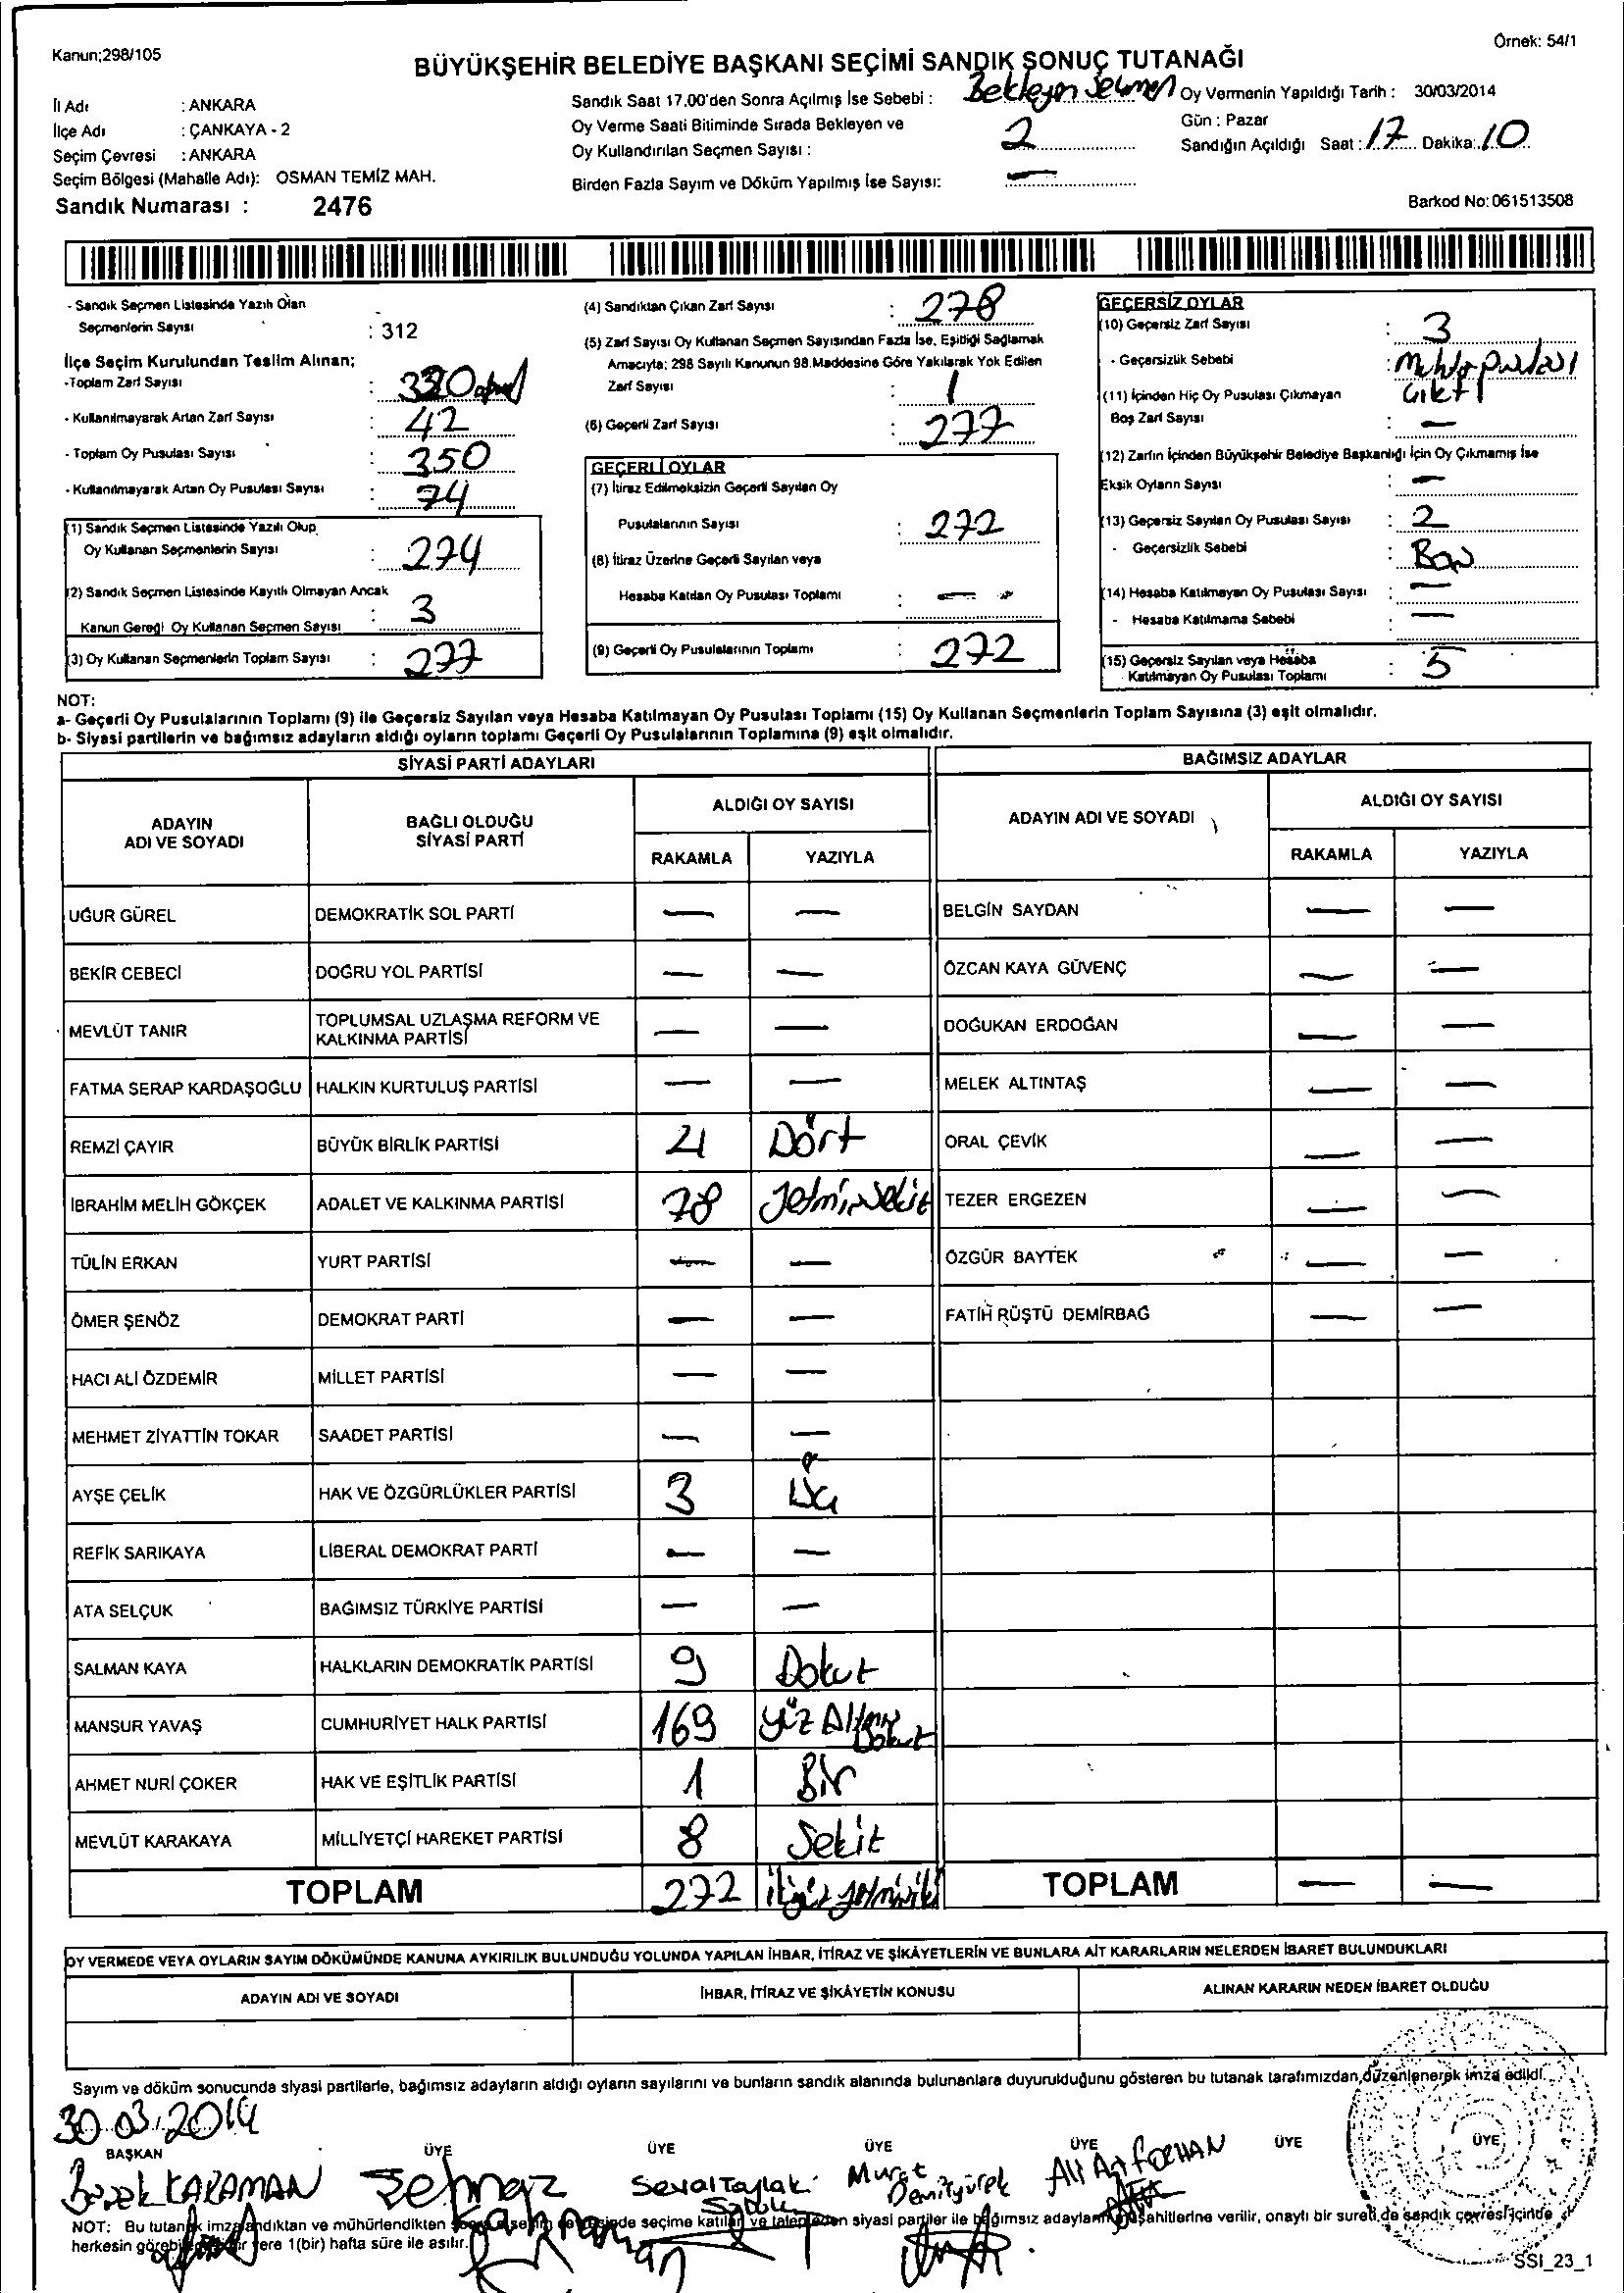 Kanun;298/105
Örnek: 54/1
BÜYÜKŞEHİR BELEDİYE BAŞKANI SEÇİMİ SANDIK SONUÇ TUTANAĞI
İl Adı : ANKARA
İlçe Adı : ÇANKAYA - 2
Seçim Çevresi : ANKARA
Seçim Bölgesi (Mahalle Adı): OSMAN TEMİZ MAH.
Sandık Numarası : 2476
Sandık Saat 17.00'den Sonra Açılmış İse Sebebi : Bekleyen Seçmen
Oy Verme Saati Bitiminde Sırada Bekleyen ve
Oy Kullandırılan Seçmen Sayısı : 2
Birden Fazla Sayım ve Döküm Yapılmış İse Sayısı: —
Oy Vermenin Yapıldığı Tarih : 30/03/2014
Gün : Pazar
Sandığın Açıldığı Saat : 17 Dakika: 10
Barkod No: 061513508
- Sandık Seçmen Listesinde Yazılı Olan
Seçmenlerin Sayısı : 312
İlçe Seçim Kurulundan Teslim Alınan;
-Toplam Zarf Sayısı : 320
- Kullanılmayarak Artan Zarf Sayısı : 42
- Toplam Oy Pusulası Sayısı : 350
- Kullanılmayarak Artan Oy Pusulası Sayısı : 74
(1) Sandık Seçmen Listesinde Yazılı Olup
Oy Kullanan Seçmenlerin Sayısı : 274
(2) Sandık Seçmen Listesinde Kayıtlı Olmayan Ancak
Kanun Gereği Oy Kullanan Seçmen Sayısı : 3
(3) Oy Kullanan Seçmenlerin Toplam Sayısı : 277
(4) Sandıktan Çıkan Zarf Sayısı : 278
(5) Zarf Sayısı Oy Kullanan Seçmen Sayısından Fazla İse, Eşitliği Sağlamak
Amacıyla; 298 Sayılı Kanunun 98.Maddesine Göre Yakılarak Yok Edilen
Zarf Sayısı : 1
(6) Geçerli Zarf Sayısı : 277
GEÇERLİ OYLAR
(7) İtiraz Edilmeksizin Geçerli Sayılan Oy
Pusulalarının Sayısı : 272
(8) İtiraz Üzerine Geçerli Sayılan veya
Hesaba Katılan Oy Pusulası Toplamı : —
(9) Geçerli Oy Pusulalarının Toplamı : 272
GEÇERSİZ OYLAR
(10) Geçersiz Zarf Sayısı : 3
- Geçersizlik Sebebi : Muhtar pusulası
çıktı
(11) İçinden Hiç Oy Pusulası Çıkmayan
Boş Zarf Sayısı : —
(12) Zarfın İçinden Büyükşehir Belediye Başkanlığı İçin Oy Çıkmamış İse
Eksik Oyların Sayısı : —
(13) Geçersiz Sayılan Oy Pusulası Sayısı : 2
- Geçersizlik Sebebi :
(14) Hesaba Katılmayan Oy Pusulası Sayısı : —
- Hesaba Katılmama Sebebi : —
(15) Geçersiz Sayılan veya Hesaba
Katılmayan Oy Pusulası Toplamı : 5
NOT:
a- Geçerli Oy Pusulalarının Toplamı (9) ile Geçersiz Sayılan veya Hesaba Katılmayan Oy Pusulası Toplamı (15) Oy Kullanan Seçmenlerin Toplam Sayısına (3) eşit olmalıdır.
b- Siyasi partilerin ve bağımsız adayların aldığı oyların toplamı Geçerli Oy Pusulalarının Toplamına (9) eşit olmalıdır.
SİYASİ PARTİ ADAYLARI
BAĞIMSIZ ADAYLAR
ADAYIN
ADI VE SOYADI
BAĞLI OLDUĞU
SİYASİ PARTİ
ALDIĞI OY SAYISI
RAKAMLA YAZIYLA
ADAYIN ADI VE SOYADI
ALDIĞI OY SAYISI
RAKAMLA YAZIYLA
UĞUR GÜREL DEMOKRATİK SOL PARTİ — — BELGİN SAYDAN — —
BEKİR CEBECİ DOĞRU YOL PARTİSİ — — ÖZCAN KAYA GÜVENÇ — —
MEVLÜT TANIR TOPLUMSAL UZLAŞMA REFORM VE
KALKINMA PARTİSİ — — DOĞUKAN ERDOĞAN — —
FATMA SERAP KARDAŞOĞLU HALKIN KURTULUŞ PARTİSİ — — MELEK ALTINTAŞ — —
REMZİ ÇAYIR BÜYÜK BİRLİK PARTİSİ 4 Dört ORAL ÇEVİK — —
İBRAHİM MELİH GÖKÇEK ADALET VE KALKINMA PARTİSİ 78 Yetmiş Sekiz TEZER ERGEZEN — —
TÜLİN ERKAN YURT PARTİSİ — — ÖZGÜR BAYTEK — —
ÖMER ŞENÖZ DEMOKRAT PARTİ — — FATİH RÜŞTÜ DEMİRBAĞ — —
HACI ALİ ÖZDEMİR MİLLET PARTİSİ — —
MEHMET ZİYATTİN TOKAR SAADET PARTİSİ — —
AYŞE ÇELİK HAK VE ÖZGÜRLÜKLER PARTİSİ 3 Üç
REFİK SARIKAYA LİBERAL DEMOKRAT PARTİ — —
ATA SELÇUK BAĞIMSIZ TÜRKİYE PARTİSİ — —
SALMAN KAYA HALKLARIN DEMOKRATİK PARTİSİ 9 Dokuz
MANSUR YAVAŞ CUMHURİYET HALK PARTİSİ 169 Yüz Altmış
Dokuz
AHMET NURİ ÇOKER HAK VE EŞİTLİK PARTİSİ 1 Bir
MEVLÜT KARAKAYA MİLLİYETÇİ HAREKET PARTİSİ 8 Sekiz
TOPLAM 272 ikiyüz yetmişiki TOPLAM — —
OY VERMEDE VEYA OYLARIN SAYIM DÖKÜMÜNDE KANUNA AYKIRILIK BULUNDUĞU YOLUNDA YAPILAN İHBAR, İTİRAZ VE ŞİKÂYETLERİN VE BUNLARA AİT KARARLARIN NELERDEN İBARET BULUNDUKLARI
ADAYIN ADI VE SOYADI İHBAR, İTİRAZ VE ŞİKÂYETİN KONUSU ALINAN KARARIN NEDEN İBARET OLDUĞU
Sayım ve döküm sonucunda siyasi partilerle, bağımsız adayların aldığı oyların sayılarını ve bunların sandık alanında bulunanlara duyurulduğunu gösteren bu tutanak tarafımızdan düzenlenerek imza edildi.
30.03.2014
BAŞKAN ÜYE ÜYE ÜYE ÜYE ÜYE ÜYE
KARAMAN Murat
Demiryürek
NOT: Bu tutanak imzalandıktan ve mühürlendikten seçime katılan ve talep eden siyasi partiler ile bağımsız adayların müşahitlerine verilir, onaylı bir sureti de sandık çevresi içinde
herkesin yere 1(bir) hafta süre ile asılır.
SSI_23_1